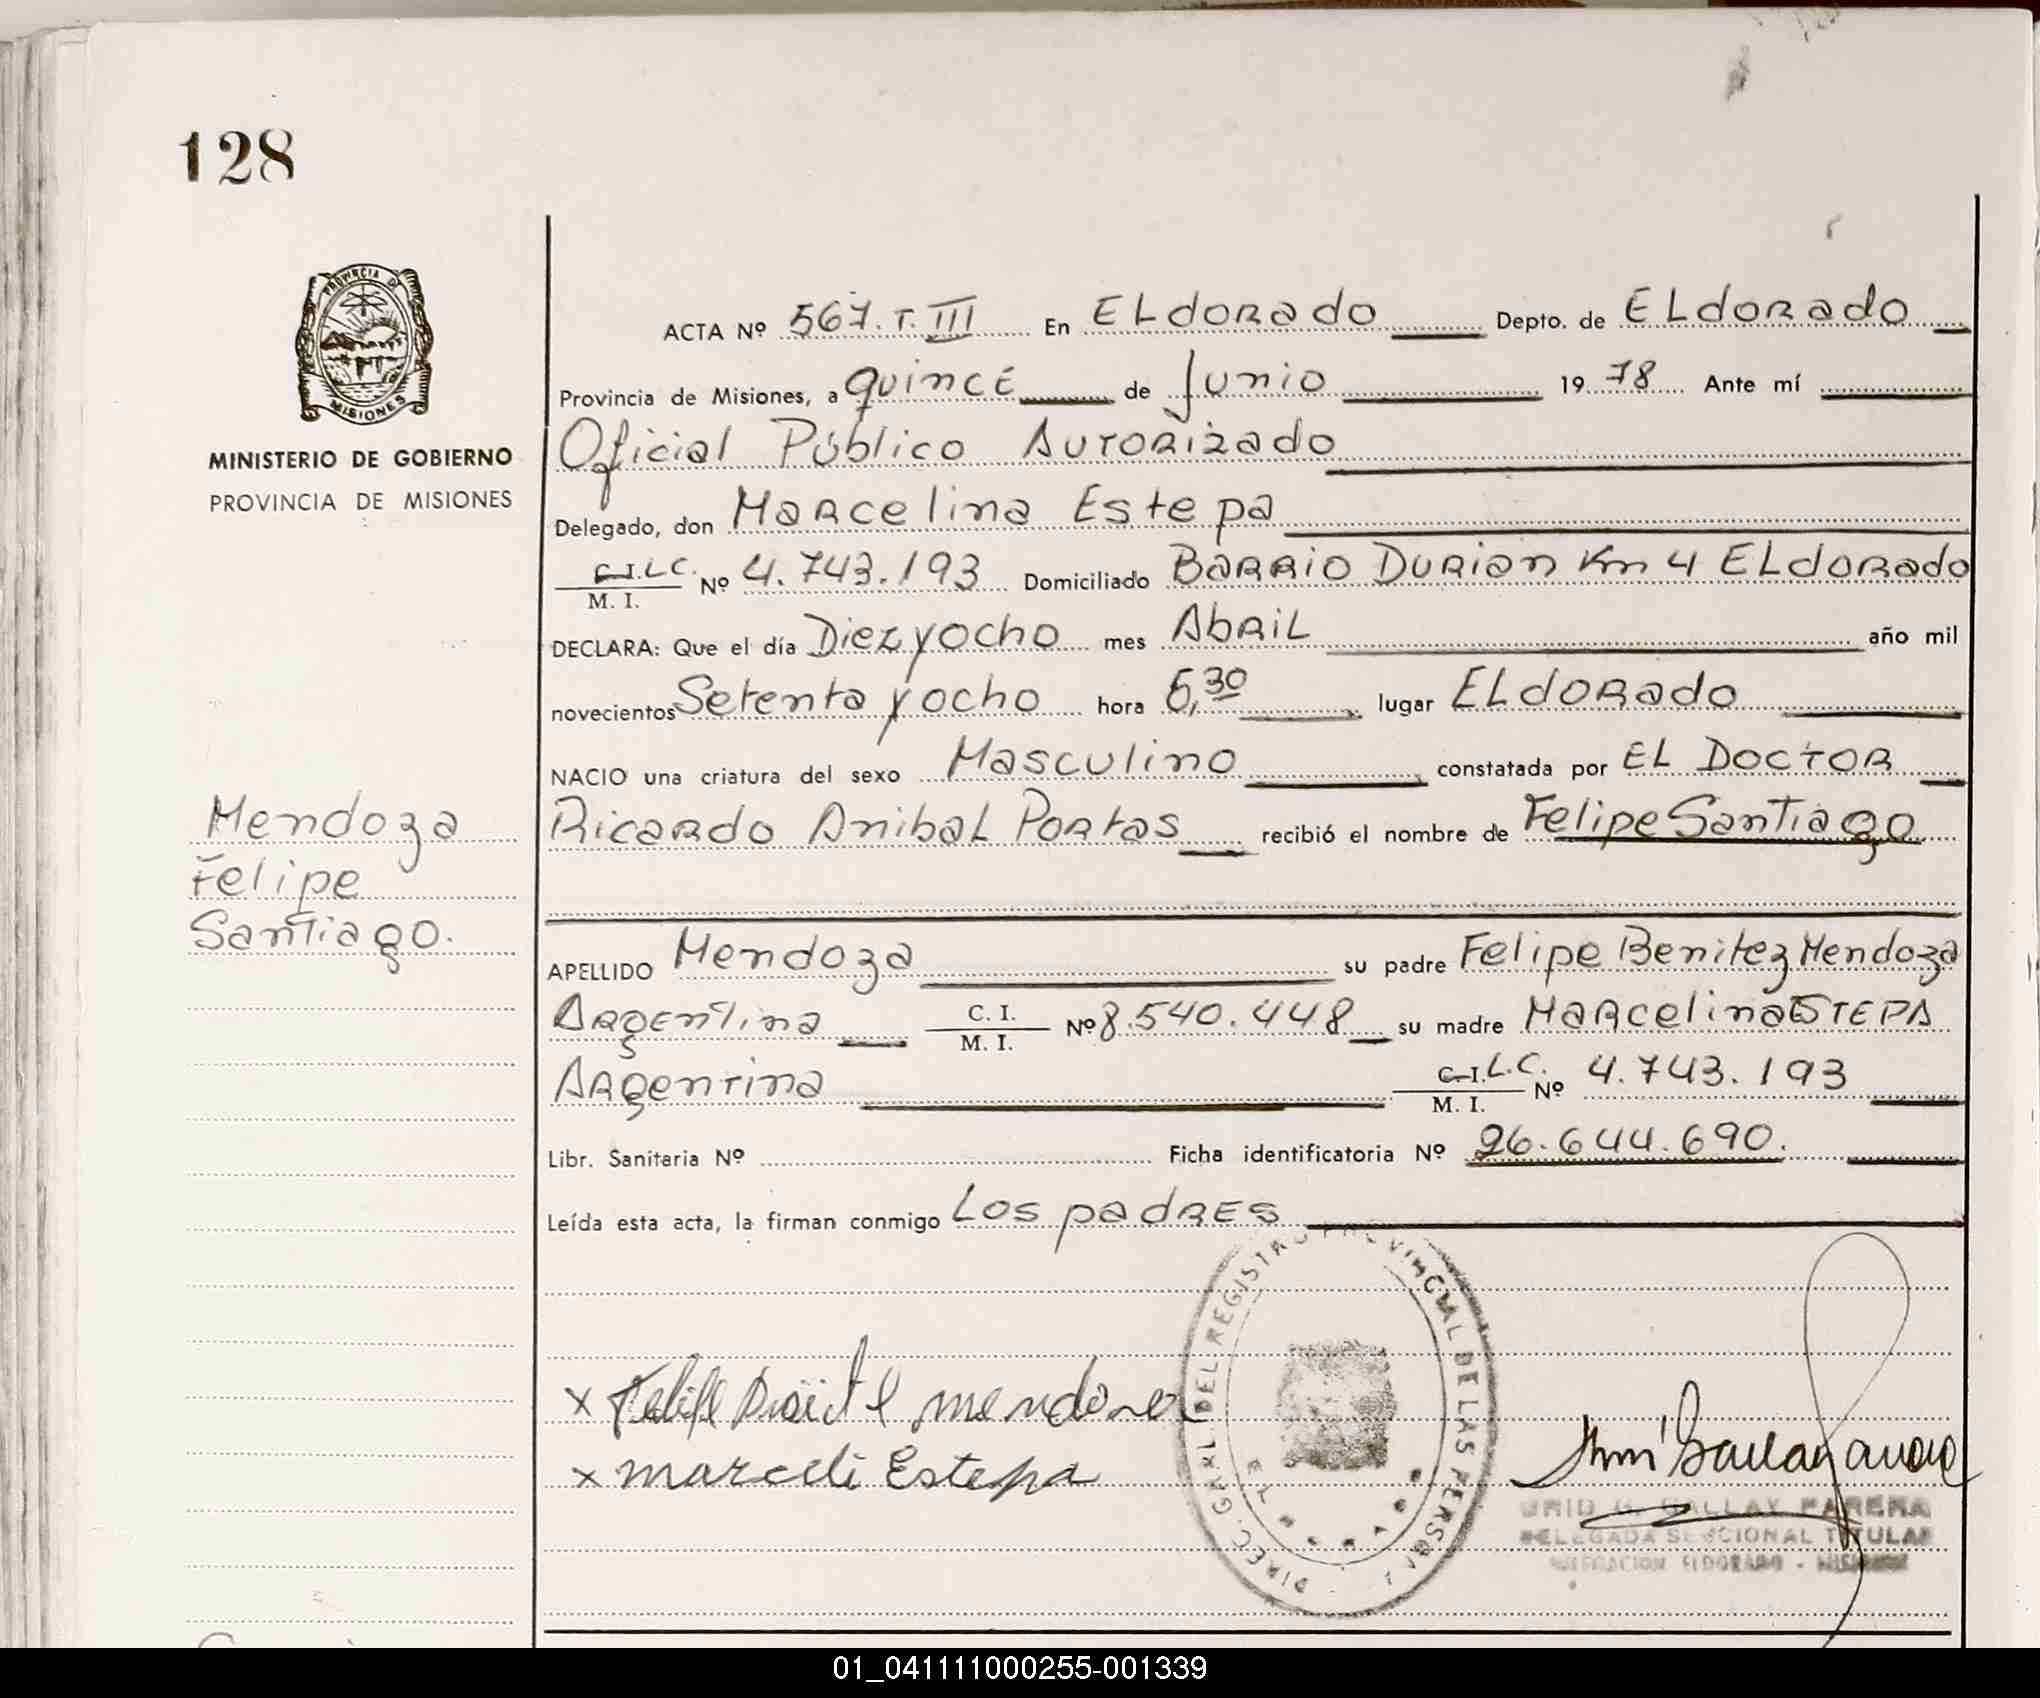 128
PROVINCIA DE
MISIONES
MINISTERIO DE GOBIERNO
PROVINCIA DE MISIONES
Mendoza
Felipe
Santiago.
ACTA Nº 567. T. III En ELdorado Depto. de ELdorado
Provincia de Misiones, a quince de Junio 19 78 Ante mí
Oficial Público Autorizado
Delegado, don Marcelina Estepa
C.I. L.C. Nº 4.743.193 Domiciliado Barrio Durian Km 4 ELdorado
M. I.
DECLARA: Que el día Diez y ocho mes Abril año mil
novecientos Setenta y ocho hora 6,30 lugar ELdorado
NACIO una criatura del sexo Masculino constatada por EL Doctor
Ricardo Anibal Portas recibió el nombre de Felipe Santiago
APELLIDO Mendoza su padre Felipe Benitez Mendoza
Argentina C. I. Nº 8.540.448 su madre Marcelina ESTEPA
M. I.
Argentina C.I. L.C. Nº 4.743.193
M. I.
Libr. Sanitaria Nº Ficha identificatoria Nº 26.644.690.
Leída esta acta, la firman conmigo Los padres
DIREC. GRAL. DEL REGISTRO PROVINCIAL DE LAS PERSONAS
x mendoza
x marceli Estepa
GALLAY PARERA
DELEGADA SECCIONAL TITULAR
DELEGACION ELDORADO - MISIONES
01_041111000255-001339